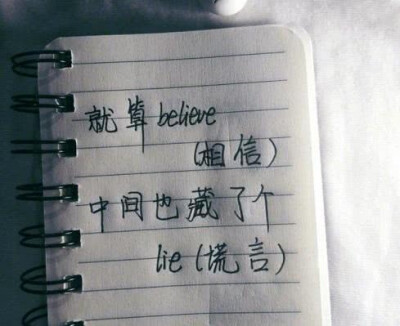 就算believe
(相信)
中间也藏了个
lie(谎言)